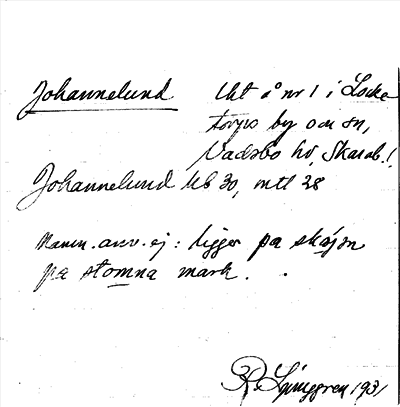 Johannelund Uht å nr 1 i Locke
torps by och sn,
Vadsbo hd, Skarab.l.
Johannelund Kb 30, mtl 28
Namn. anv. ej: ligger på skäjin
på stomna mark.
R. Ljunggren 1931